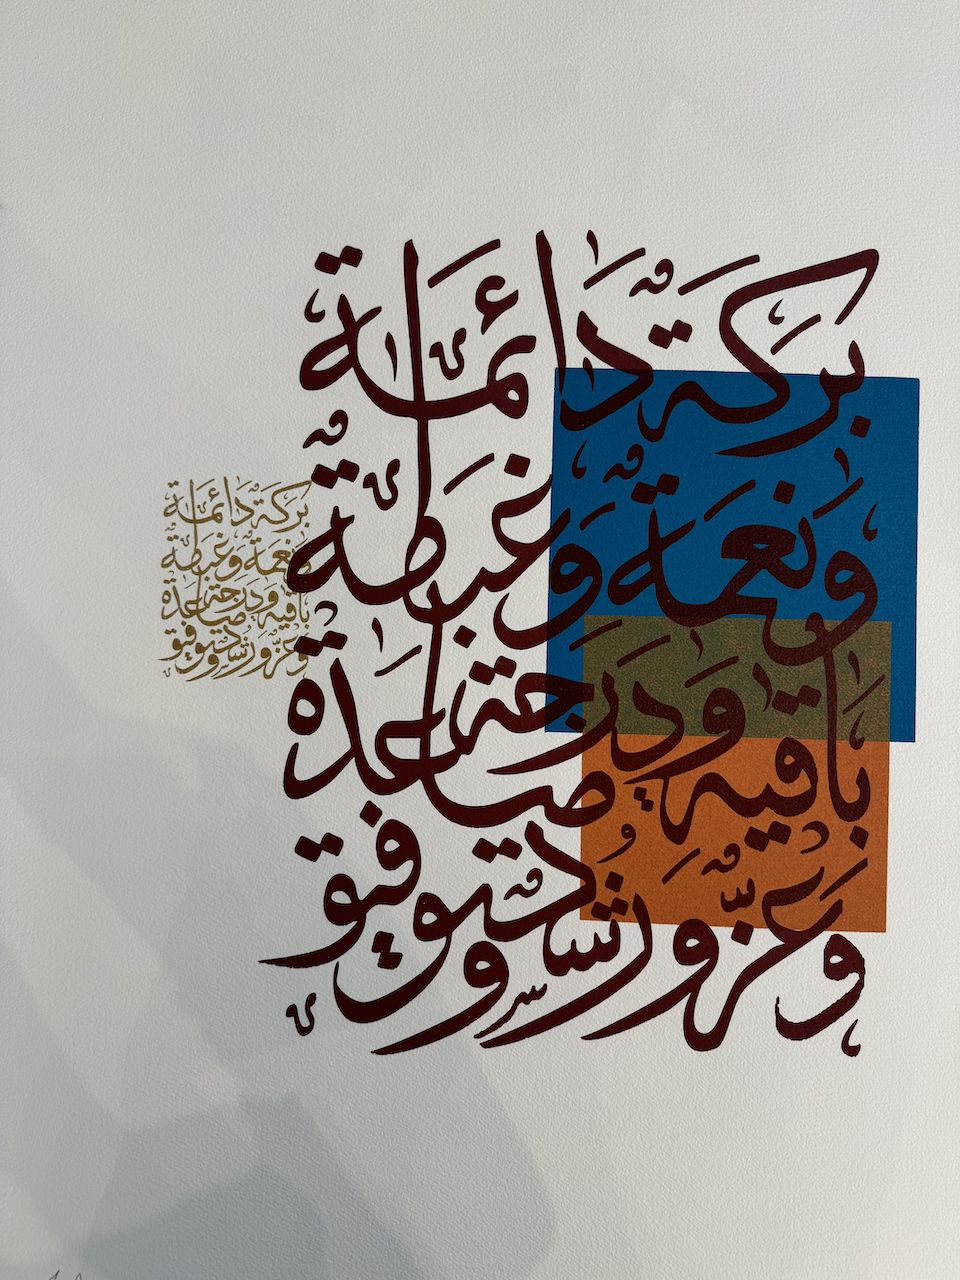 بَركَةٌ دَائمَة
ونعمَةٌ وغبطَةٌ
باقيه ودرجة صاعدة
وعزٌّ ورُشدٌ وتوفيق
بَركَةٌ دَائمَة
ونعمَةٌ وغبطَة
باقيه ودرجة صاعدة
وعزٌّ ورشد وتوفيق